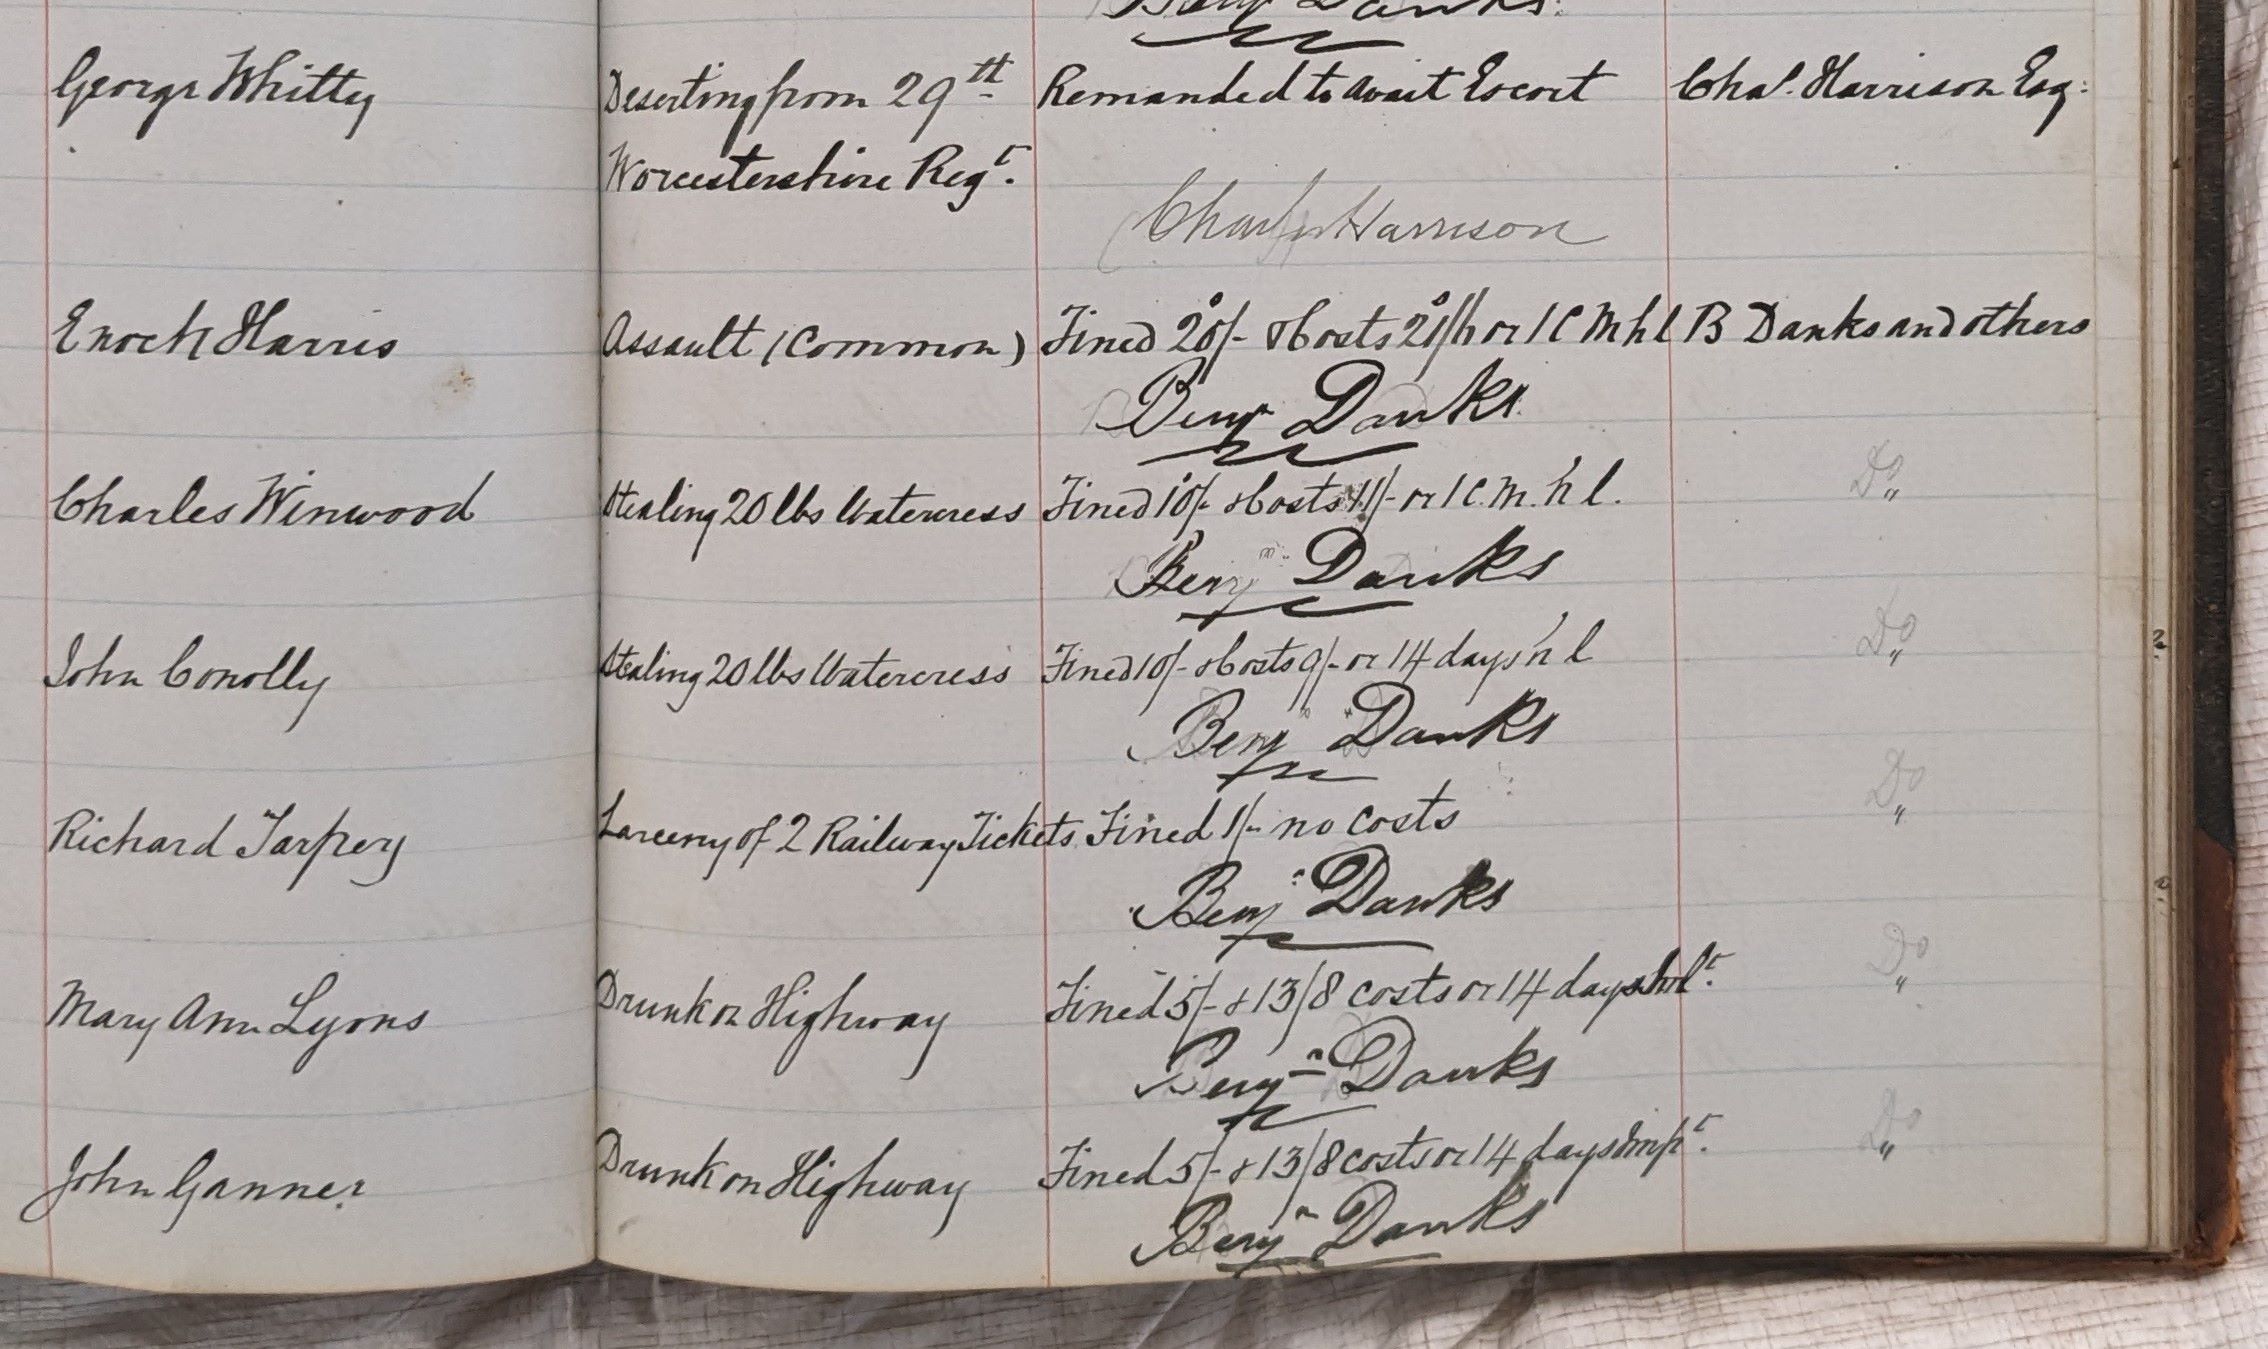 Benj Danks.
George Whitty Deserting from 29th Remanded to await Escort Chas. Harrison Esq:
Worcestershire Regt.
Charles Harrison
Enoch Harris Assault (Common) Fined 20/- & Costs or 1 C M h l B Danks and others
Benjn Danks
Charles Winwood Stealing 20 lbs Watercress Fined 10/- & Costs 11/- or 1 C. M. h l. Do
Benjn Danks
John Conolly Stealing 20 lbs Watercress Fined 10/- & Costs 9/- or 14 days h l Do
Benjn Danks
Richard Tarpey Larceny of 2 Railway Tickets Fined 1/- no costs Do
Benjn Danks
Mary Ann Lyons Drunk on Highway Fined 5/- & 13/8 costs or 14 days Do
Benjn Danks
John Ganner Drunk on Highway Fined 5/- & 13/8 costs or 14 days Impt. Do
Benjn Danks